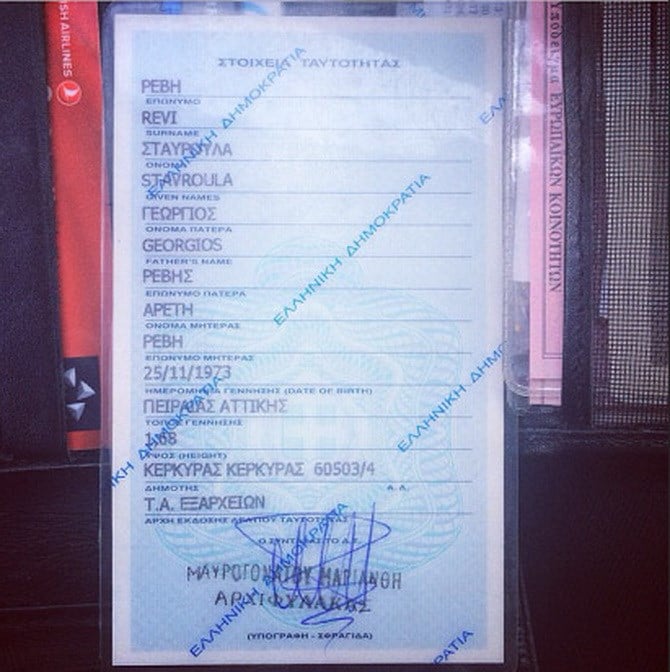 ΣΤΟΙΧΕΙΑ ΤΑΥΤΟΤΗΤΑΣ
ΡΕΒΗ
ΕΠΩΝΥΜΟ
REVI
SURNAME
ΣΤΑΥΡΟΥΛΑ
ΟΝΟΜΑ
STAVROULA
GIVEN NAMES
ΓΕΩΡΓΙΟΣ
ΟΝΟΜΑ ΠΑΤΕΡΑ
GEORGIOS
FATHER'S NAME
ΡΕΒΗΣ
ΕΠΩΝΥΜΟ ΠΑΤΕΡΑ
ΑΡΕΤΗ
ΟΝΟΜΑ ΜΗΤΕΡΑΣ
ΡΕΒΗ
ΕΠΩΝΥΜΟ ΜΗΤΕΡΑΣ
25/11/1973
ΗΜΕΡΟΜΗΝΙΑ ΓΕΝΝΗΣΗΣ (DATE OF BIRTH)
ΠΕΙΡΑΙΑΣ ΑΤΤΙΚΗΣ
ΤΟΠΟΣ ΓΕΝΝΗΣΗΣ
1,68
ΥΨΟΣ (HEIGHT)
ΚΕΡΚΥΡΑΣ ΚΕΡΚΥΡΑΣ 60503/4
ΔΗΜΟΤΗΣ Α.Α.
Τ.Α. ΕΞΑΡΧΕΙΩΝ
ΑΡΧΗ ΕΚΔΟΣΗΣ ΔΕΛΤΙΟΥ ΤΑΥΤΟΤΗΤΑΣ
Ο ΣΥΝΤΑΞΑΣ ΤΟ Δ.Τ.
ΜΑΥΡΟΓΟΝΑΤΟΥ ΜΑΡΙΑΝΘΗ
ΑΡΧΙΦΥΛΑΚΑΣ
(ΥΠΟΓΡΑΦΗ - ΣΦΡΑΓΙΔΑ)
ΕΛΛΗΝΙΚΗ ΔΗΜΟΚΡΑΤΙΑ
ΕΛΛΗΝΙΚΗ ΔΗΜΟΚΡΑΤΙΑ
ΕΛΛΗΝΙΚΗ ΔΗΜΟΚΡΑΤΙΑ
ΕΛΛΗΝΙΚΗ ΔΗΜΟΚΡΑΤΙΑ
AIRLINES
Υπόδειγμα ΕΥΡΩΠΑΙΚΩΝ ΚΟΙΝΟΤΗΤΩΝ